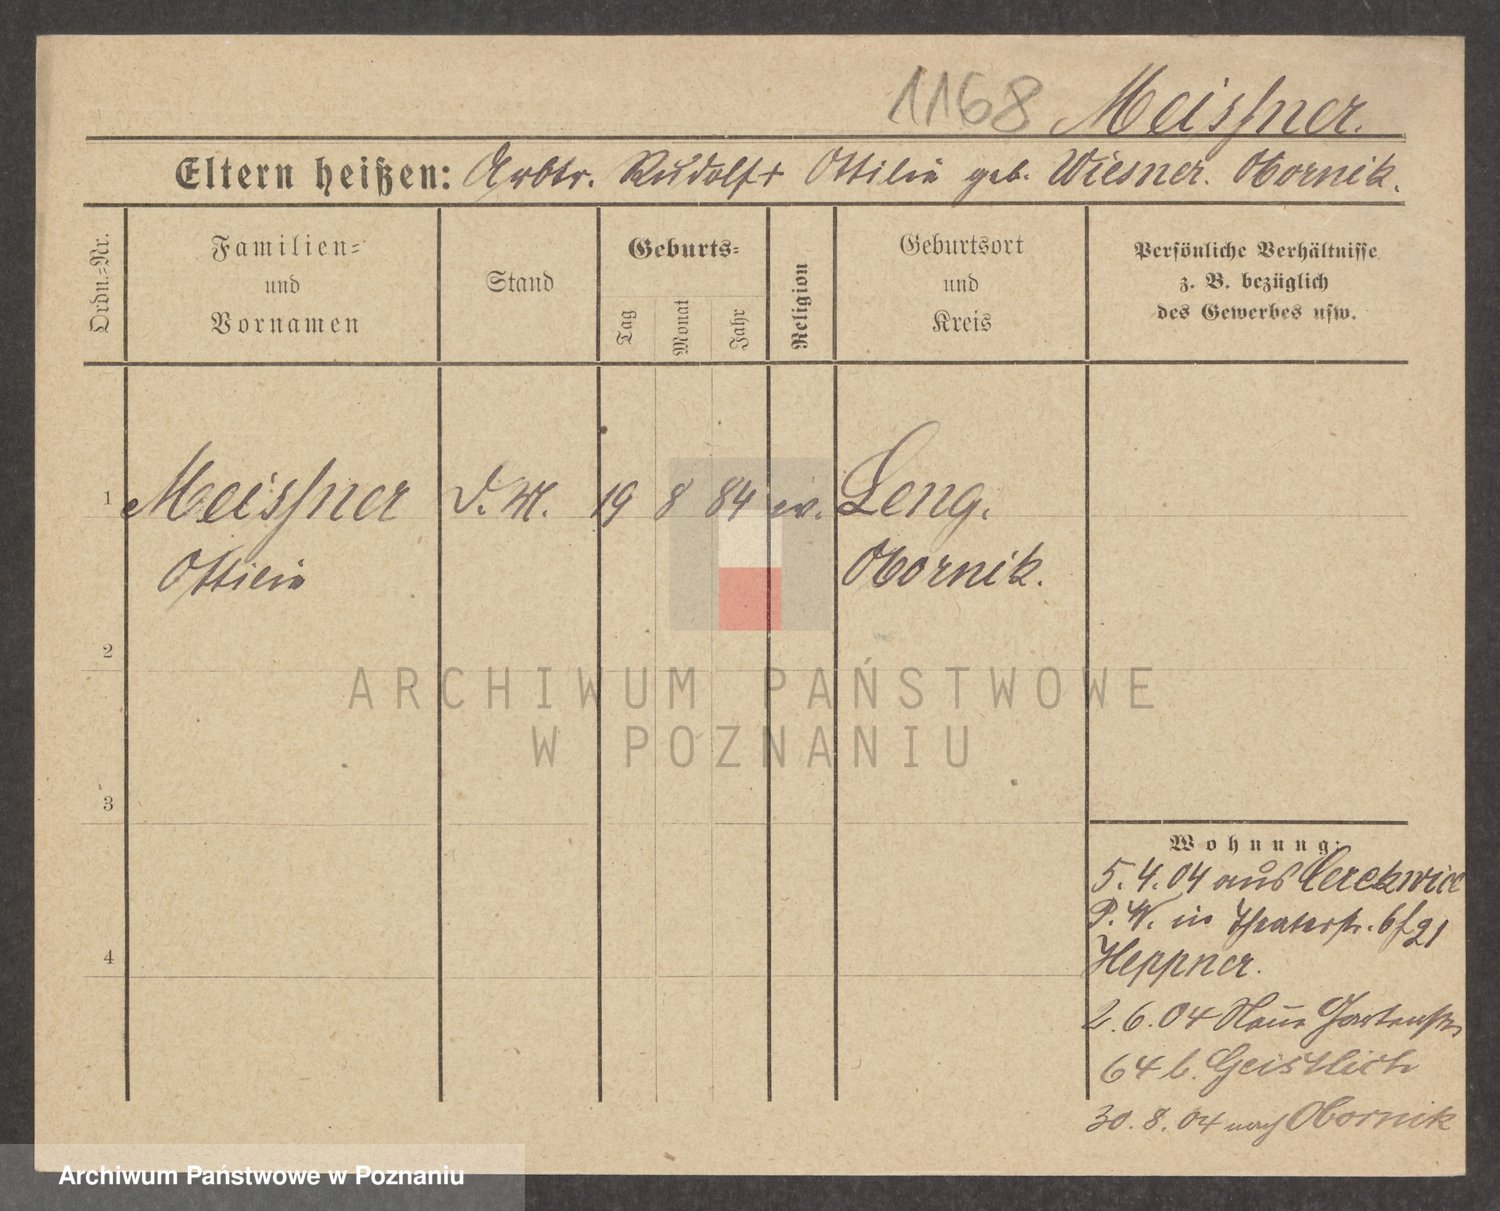 1168 Meissner.
Eltern heißen: Arbtr. Rudolf + Ottilie geb. Wiesner. Obornik.
Ordn.-Nr.
Familien-
und
Vornamen
Stand
Geburts-
Tag
Monat
Jahr
Religion
Geburtsort
und
Kreis
Persönliche Verhältnisse
z. B. bezüglich
des Gewerbes usw.
1 Meissner D. M. 19 8 84 ev. Leng.
Ottilie Obornik.
2
ARCHIWUM PAŃSTWOWE
W POZNANIU
3
Wohnung:
5.4.04 aus Cerekwice
P. W. in Theaterstr. 6 f 21
4
Heppner.
2.6.04 Neue Gartenstr.
64 b. Geistlich
30.8.04 nach Obornik
Archiwum Państwowe w Poznaniu